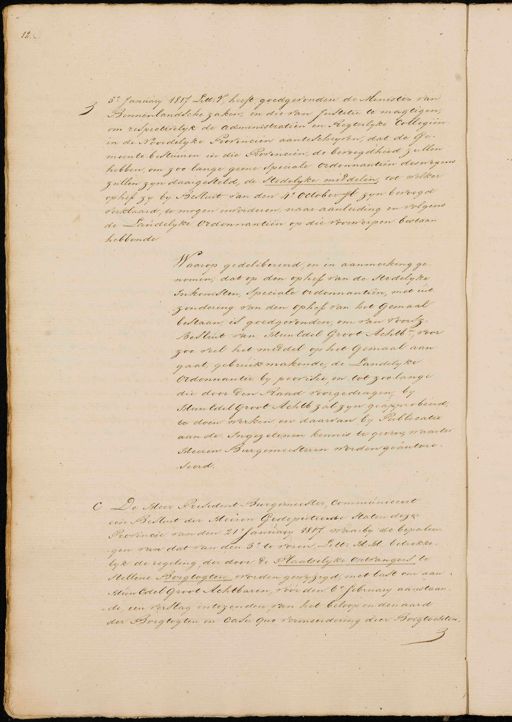 12.
5e January 1817 Litt. heeft goedgevonden de Minister van
Binnenlandsche zaken, en die van Justitie te magtigen,
om respectievelyk de administratien en Regterlyke Collegien
in de Noordelyke Provincien aanteschryven, dat de Ge-
meente bestuuren in die Provincien, de bevoegdheid zullen
hebben, om zoo lange geene speciale ordonnantien deswegens
zullen zyn daargesteld, de Stedelyke middelen, tot welker
ophef zy by Besluit van den 4e October zyn bevoegd
verklaard, te mogen invorderen, naar aanleiding en volgens
de Landelyke Ordonnantien op die voorwerpen bestaan
hebbende
Waarop gedelibereerd, en in aanmerking ge-
nomen, dat op den ophef van de Stedelyke
Inkomsten, speciale ordonnantien, met uit-
zondering van den ophef van het Gemaal
bestaan is goedgevonden, om van voorsz.
Besluit van Hun Edel Groot Achtb., voor
zoo veel het middel op het Gemaal aan-
gaat, gebruik makende, de Landelyke
Ordonnantie by provisie, en tot zoo lange
die door den Raad voorgedragen, by
Hun Edel Groot Achtb zal zyn geapprobeerd,
te doen werken en daarvan by Publicatie
aan de Ingezetenen kennis te geven, waartoe
Heeren Burgemeesteren worden geautori-
seerd.
C De Heer President Burgemeester Communiceert
een Besluit der Heeren Gedeputeerde Staten dezer
Provincie van den 21e January 1817. waarby de bepalin-
gen van dat van den 5e te voren Litt. betrekke-
lyk de regeling der door de Plaatselyke Ontvangers te
stellene Borgtogten worden gewyzigd, met last om aan
Hun Edel Groot Achtbaren, voor den 6e february aanstaan-
de, een verslag intezenden van het beloop en den aard
der Borgtogten en Casu quo vermeerdering dier Borgtochten.